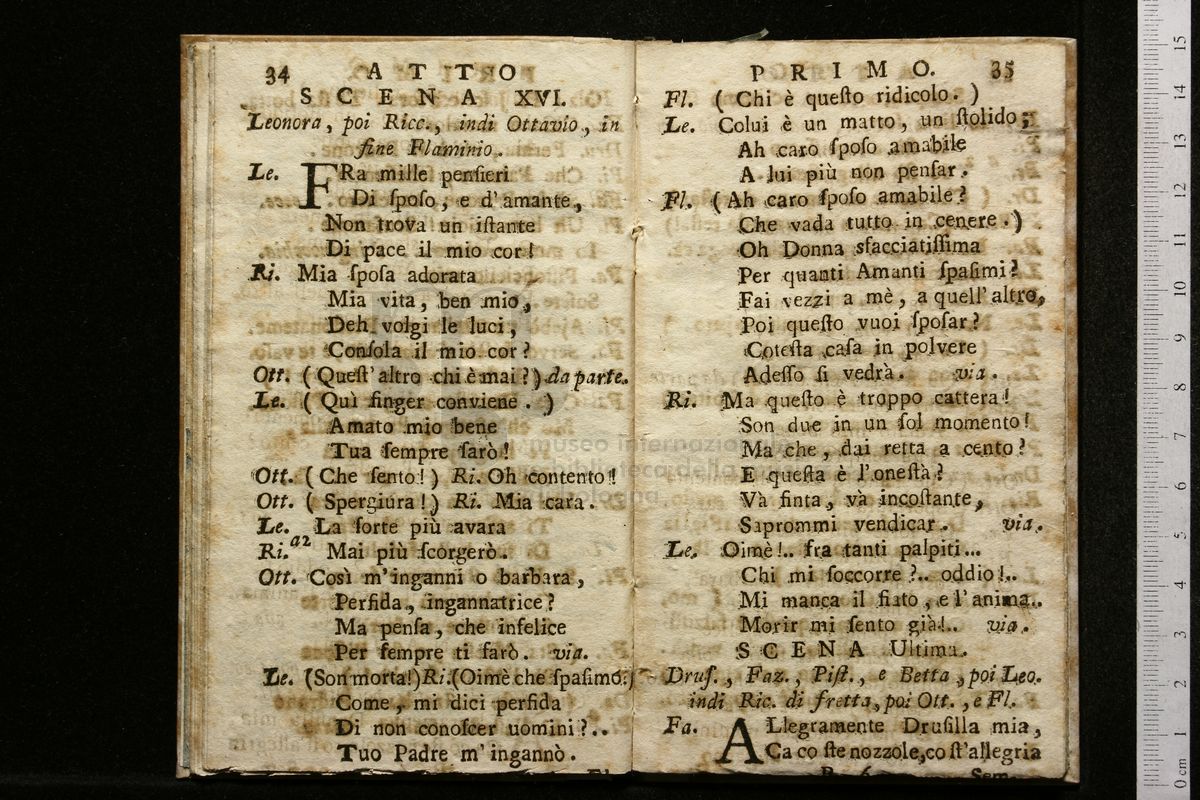 34 ATTO
SCENA XVI.
Leonora, poi Ricc., indi Ottavio, in
fine Flaminio.
Le. FRa mille penſieri
Di ſpoſo, e d'amante,
Non trova un iſtante
Di pace il mio cor!
Ri. Mia ſpoſa adorata
Mia vita, ben mio,
Deh volgi le luci,
Conſola il mio cor?
Ott. (Queſt'altro chi è mai?) da parte.
Le. (Quì finger conviene.)
Amato mio bene
Tua ſempre ſarò!
Ott. (Che ſento!) Ri. Oh contento!!
Ott. (Spergiura!) Ri. Mia cara.
Le. La ſorte più avara
Ri. a2 Mai più ſcorgerò.
Ott. Così m'inganni o barbara,
Perfida, ingannatrice?
Ma penſa, che infelice
Per ſempre ti farò. via.
Le. (Son morta!) Ri. (Oimè che ſpaſimo!)
Come, mi dici perfida
Di non conoſcer uomini?..
Tuo Padre m'ingannò.
PRIMO. 35
Fl. (Chi è queſto ridicolo.)
Le. Colui è un matto, un ſtolido;
Ah caro ſpoſo amabile
A lui più non penſar.
Fl. (Ah caro ſpoſo amabile?
Che vada tutto in cenere.)
Oh Donna sfacciatiſſima
Per quanti Amanti ſpaſimi?
Fai vezzi a mè, a quell'altro,
Poi queſto vuoi ſpoſar?
Coteſta caſa in polvere
Adeſſo ſi vedrà. via.
Ri. Ma queſto è troppo cattera!
Son due in un ſol momento!
Ma che, dai retta a cento?
E queſta è l'oneſtà?
Và finta, và incoſtante,
Saprommi vendicar. via.
Le. Oimè!.. fra tanti palpiti...
Chi mi ſoccorre?.. oddio!..
Mi manca il fiato, e l'anima..
Morir mi ſento già!.. via.
SCENA Ultima.
Druſ., Faz., Piſt., e Betta, poi Leo.
indi Ric. di fretta, poi Ott., e Fl.
Fa. ALlegramente Druſilla mia,
Ca co ſte nozzole, co ſt'allegria
museo internazionale
biblioteca della